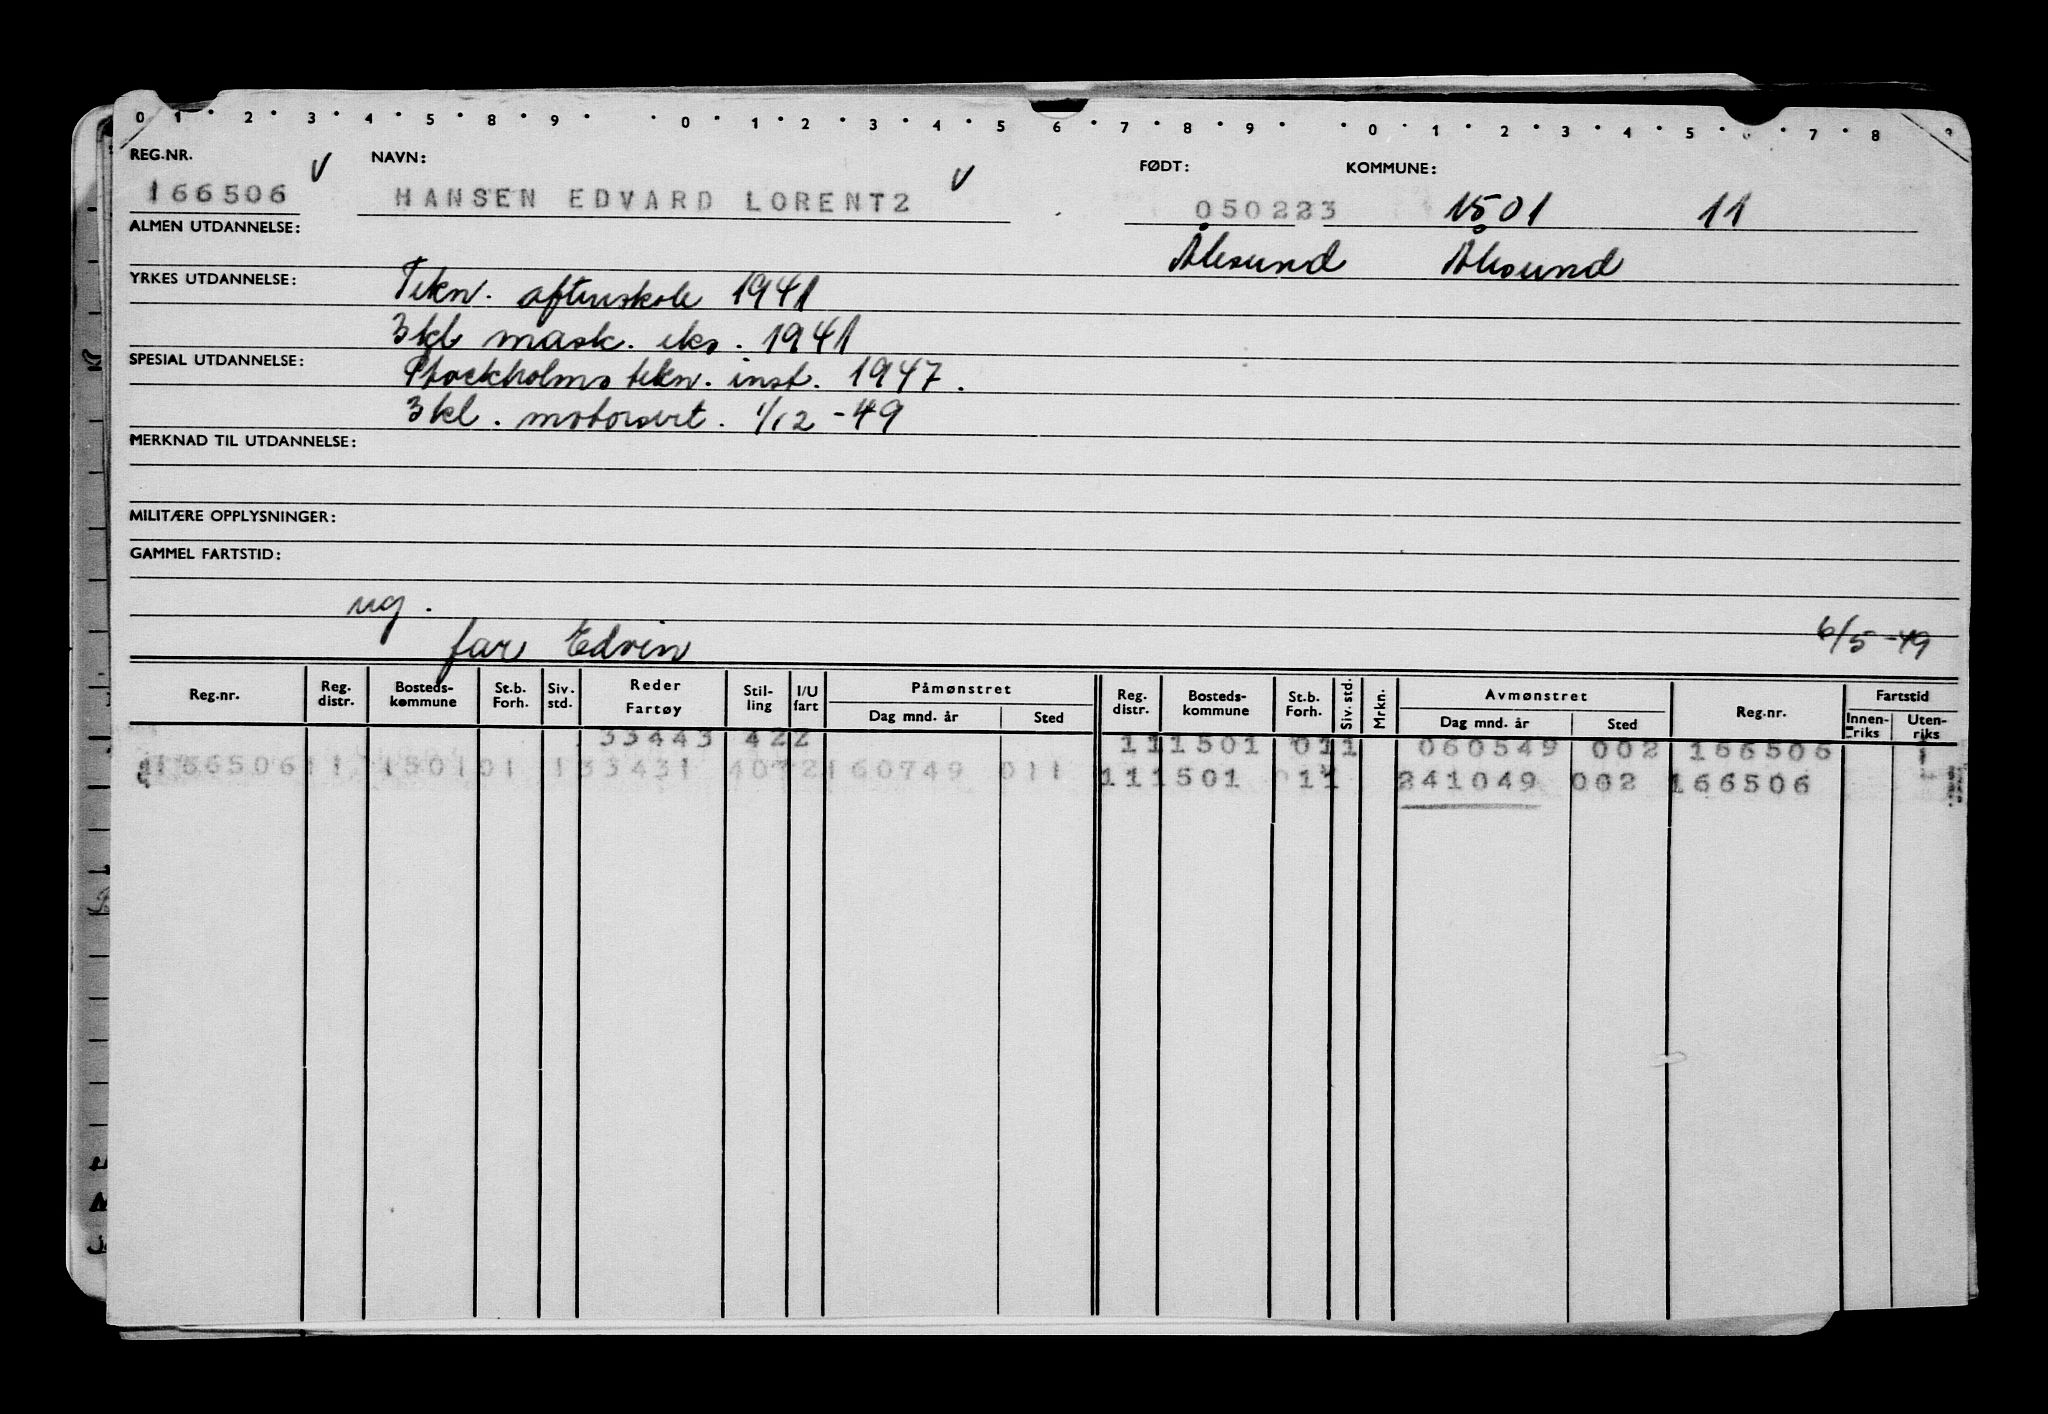 0 1 2 3 4 5 8 9 0 1 2 3 4 5 6 7 8 9 0 1 2 3 4 5 6 7 8 9
REG.NR. V NAVN: V FØDT: KOMMUNE:
166506 HANSEN EDVARD LORENTZ 050223 1501 11
ALMEN UTDANNELSE: Ålesund Ålesund
YRKES UTDANNELSE: Tekn. aftenskole 1941
3kl mask. eks. 1941
SPESIAL UTDANNELSE: Stockholms tekn. inst. 1947.
3kl. motorsert. 1/12-49
MERKNAD TIL UTDANNELSE:
MILITÆRE OPPLYSNINGER:
GAMMEL FARTSTID:
ug.
far Edvin 6/5-49
Reg.nr. Reg. distr. Bosteds-kommune St.b. Forh. Siv. std. Reder Fartøy Stil-ling I/U fart Påmønstret Dag mnd. år Sted Reg. distr. Bosteds-kommune St.b. Forh. Siv. std. Mrkn. Avmønstret Dag mnd. år Sted Reg.nr. Fartstid Innen-riks Uten-riks
33443 422 111501 011 060549 002 166506
166506 11 1501 01 1 33431 4072 160749 011 111501 11 241049 002 166506